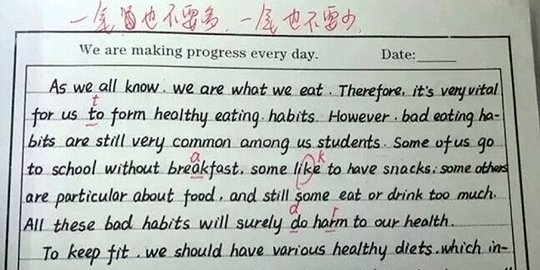 一尾也不要多，一尾也不要少
We are making progress every day. Date:_____
As we all know, we are what we eat. Therefore, it's very vital
t
for us to form healthy eating habits. However, bad eating ha-
bits are still very common among us students. Some of us go
a k
to school without breakfast, some like to have snacks, some others
are particular about food, and still some eat or drink too much.
d r
All these bad habits will surely do harm to our health.
To keep fit, we should have various healthy diets, which in-